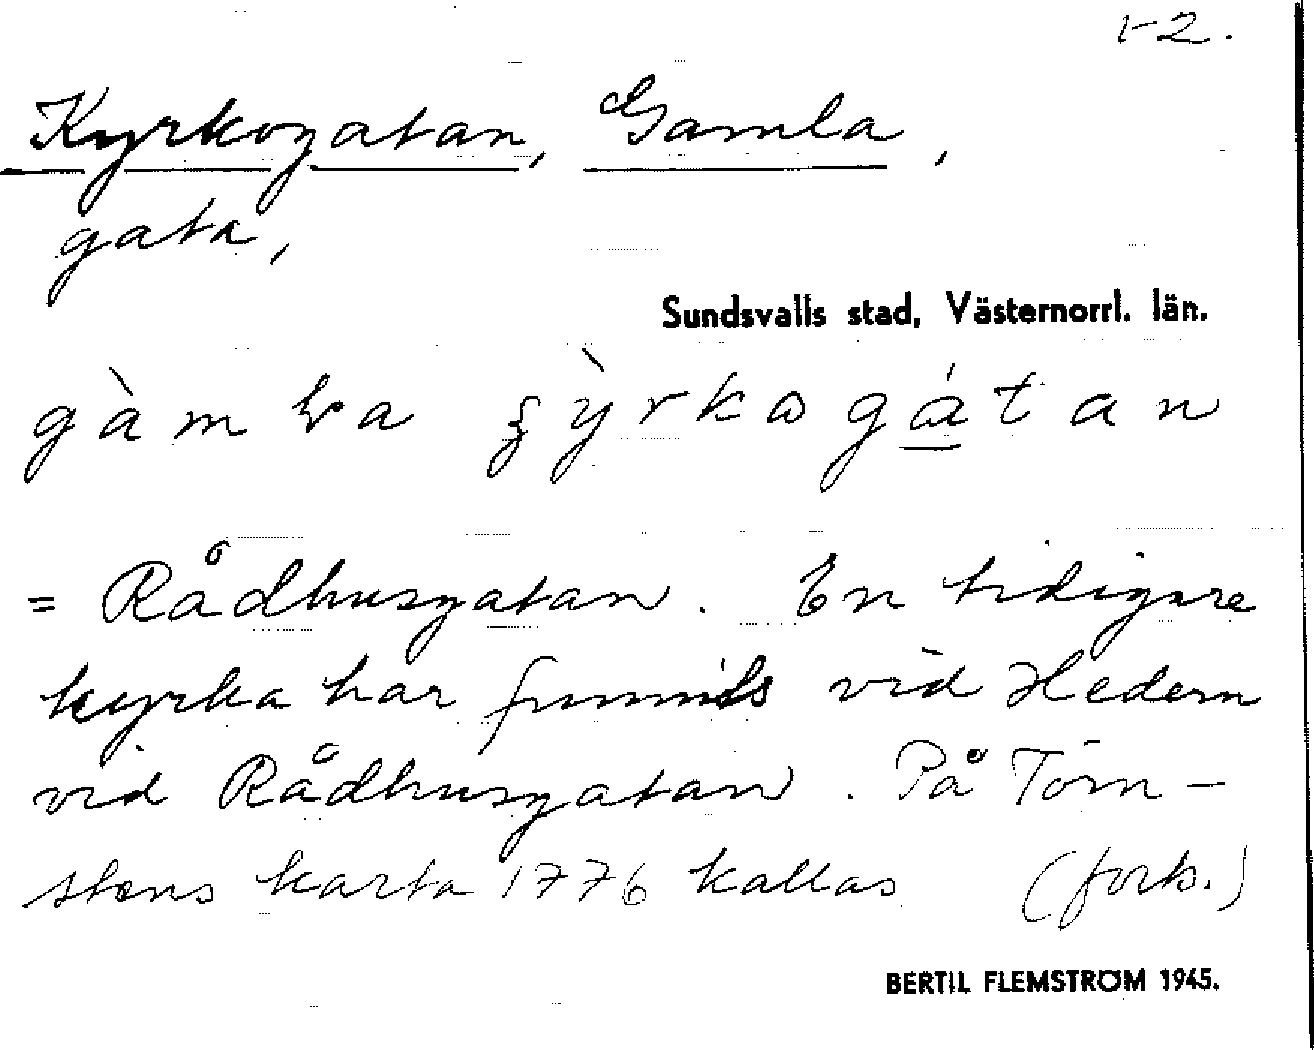 1-2.
Kyrkogatan, Gamla,
gata,
Sundsvalls stad, Västernorrl. län.
gàmla
= Rådhusgatan. En tidigare
kyrka har funnits vid Hedern
vid Rådhusgatan. På Törn-
stens karta 1776 kallas (forts.)
BERTIL FLEMSTRÖM 1945.